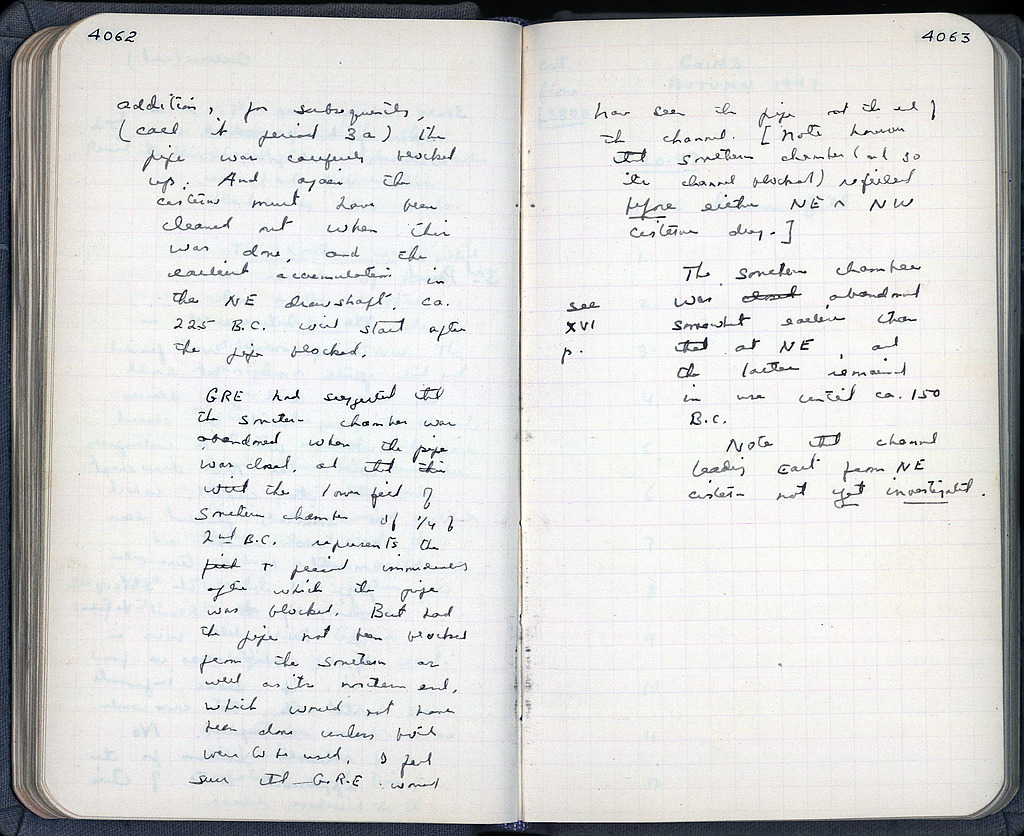 4062
addition, for subsequently,
(call it period 3a) the
pipe was carefully blocked
up. And again the
cistern must have been
cleaned out when this
was done, and the
earliest accumulation in
the NE drawshaft ca.
225 B.C. will start after
the pipe blocked.
GRE had suggested that
the southern chamber was
abandoned when the pipe
was closed, and that this
with the lower fill of
southern chamber of 1/4 of
2nd B.C. represents the
period immediately
after which the pipe
was blocked. But had
the pipe not been blocked
from the southern as
well as its northern end,
which would not have
been done unless both
were to be used, I feel
sure that G.R.E. would
4063
have seen the pipe at the end of
the channel. [Note however
that southern chamber (and so
its channel blocked) refilled
before either NE or NW
cistern dug.]
The southern chamber
see
was closed abandoned
XVI
somewhat earlier than
p.
that at NE, and
the latter remained
in use until ca. 150
B.C.
Note that channel
leading East from NE
cistern not yet investigated.